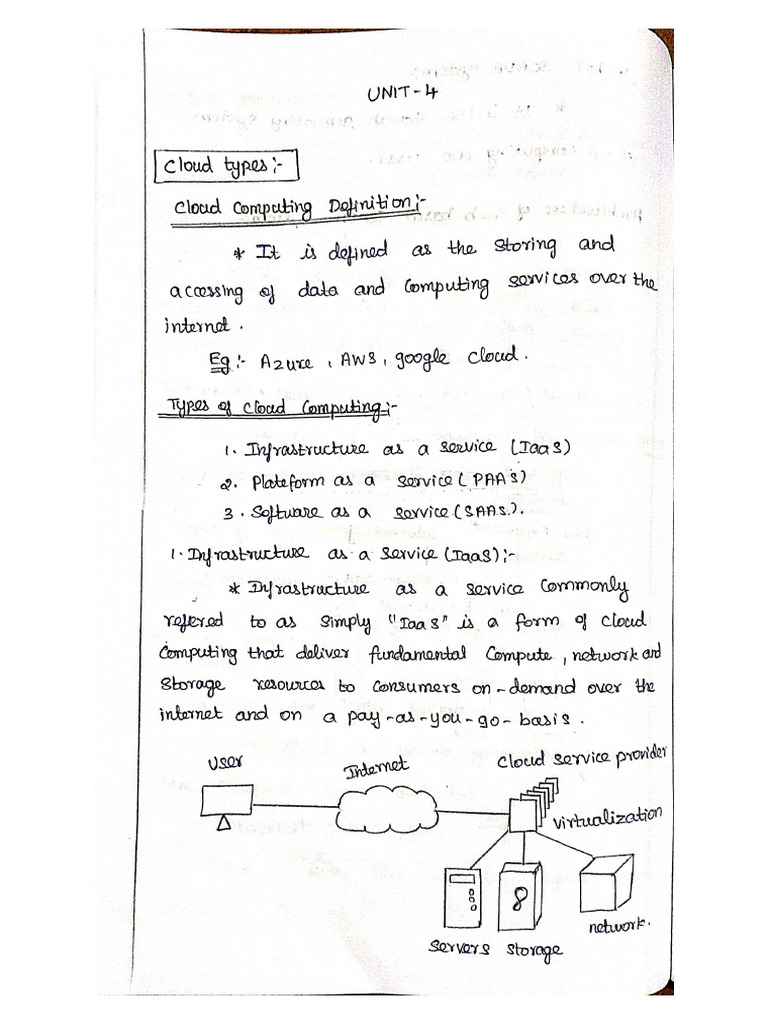 UNIT-4
Cloud types:-
Cloud Computing Definition:-
* It is defined as the storing and
accessing of data and computing services over the
internet.
Eg:- Azure, AWS, google cloud.
Types of cloud Computing:-
1. Infrastructure as a service (IaaS)
2. Plateform as a service (PAAS)
3. Software as a service (SAAS.).
1. Infrastructure as a service (IaaS):-
* Infrastructure as a service commonly
refered to as simply "IaaS" is a form of cloud
computing that deliver fundamental compute, network and
storage resources to consumers on-demand over the
internet and on a pay-as-you-go-basis.
user
Internet
Cloud service provider
virtualization
8
network.
servers storage